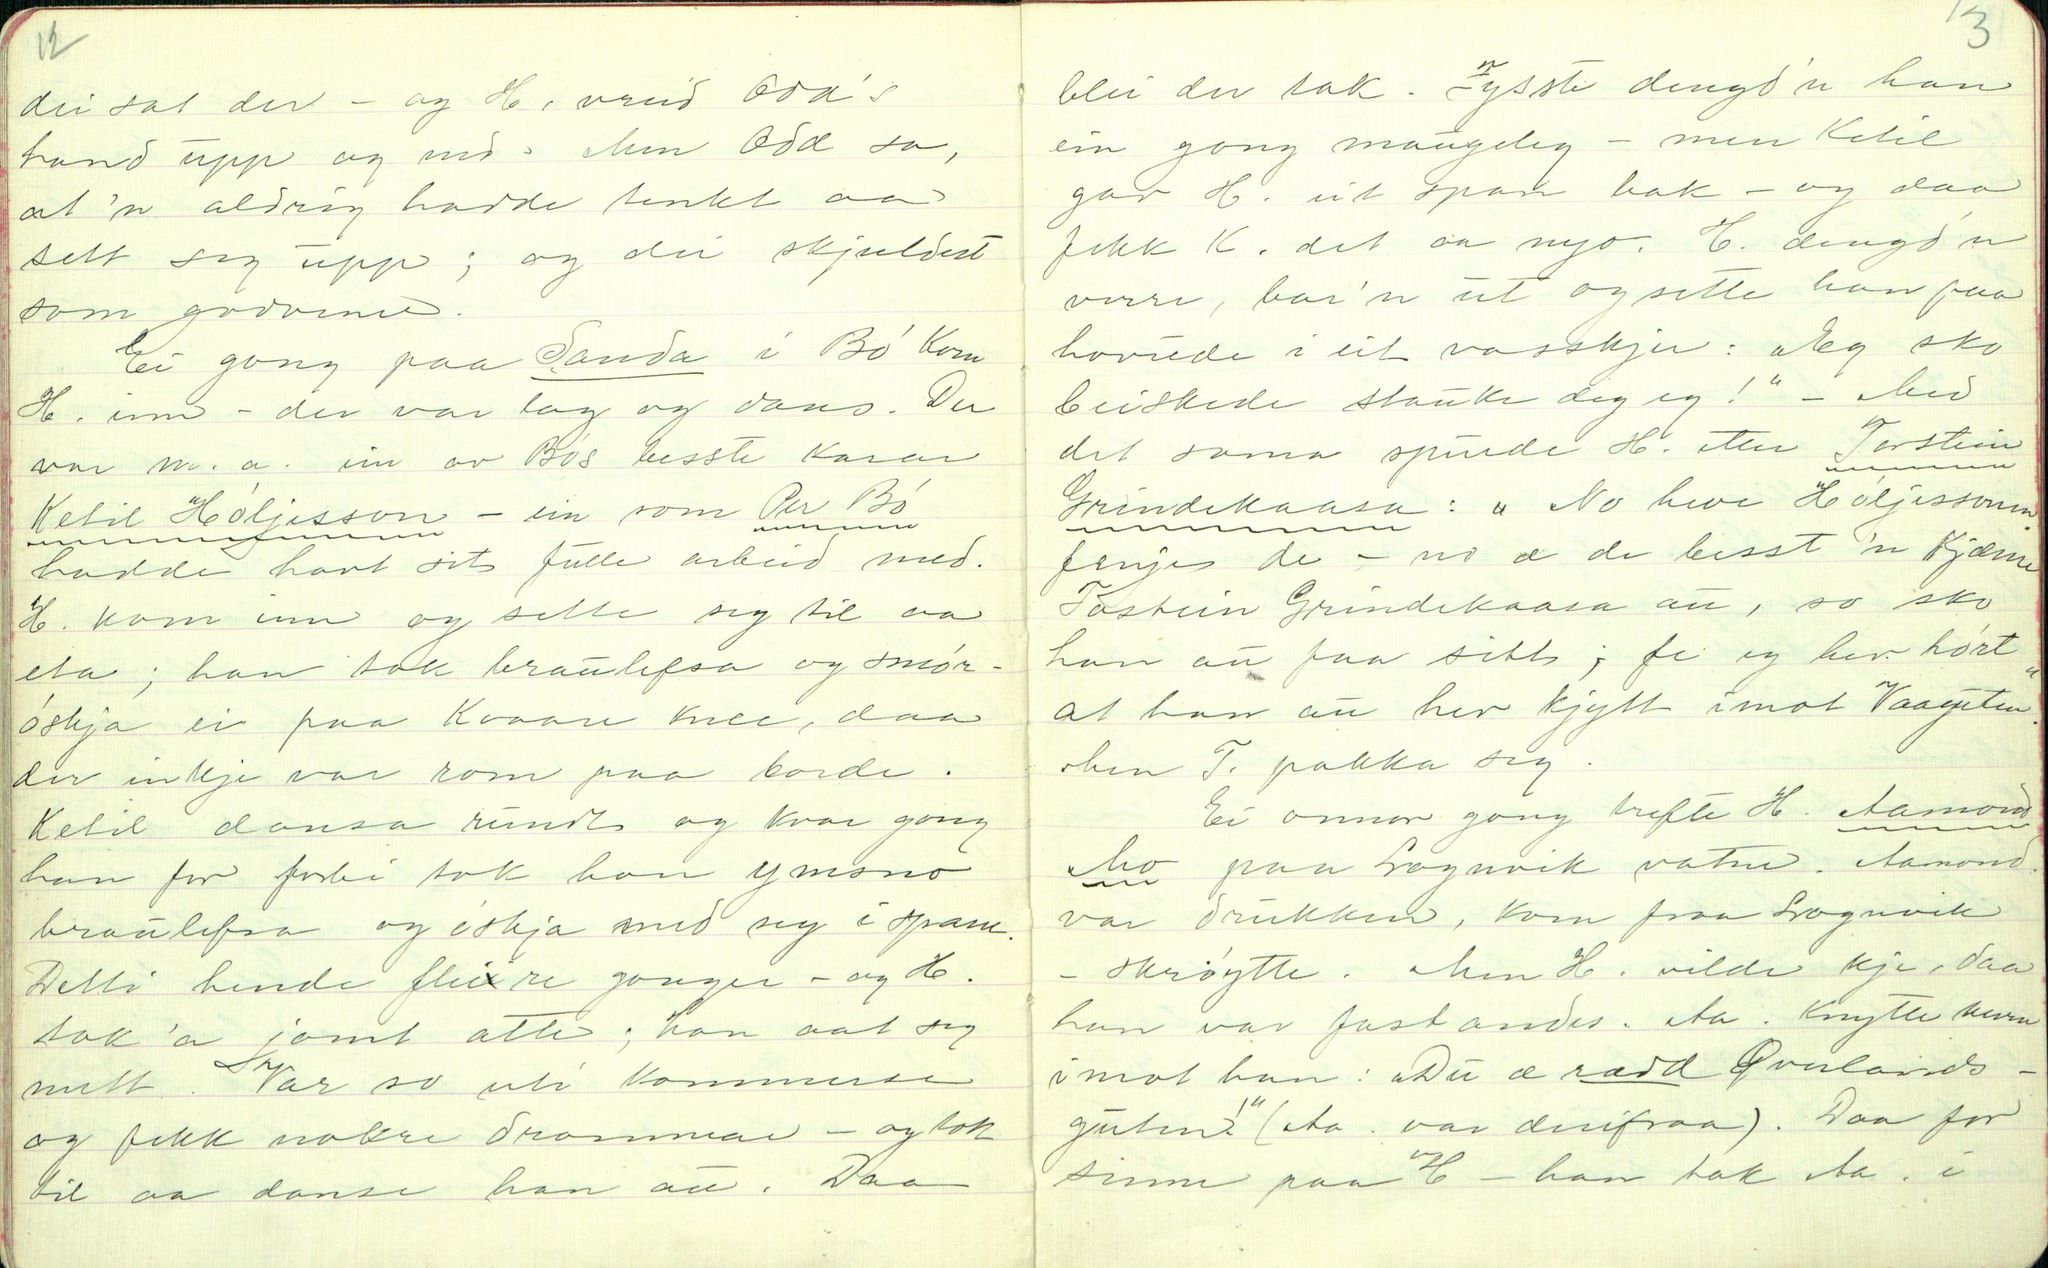 12
dei sat der – og H. vreid Odd's
hand upp og ned. Men Odd sa,
at 'n aldrig hadde tenkt aa
sett seg upp; og dei skjuldest
som godvener.
Ei gong paa Sanda i Bó kom
H. inn – der var lag og dans. Der
var m. a. ein av Bós besste karar
Ketil Hóljesson – ein som Per Bó
hadde havt sit fulle arbeid med.
H. kom inn og sette seg til aa
eta; han tok braulefsa og smór-
óskja ei paa kvaare knee, daa
der inkje var rom paa borde.
Ketil dansa rundt og kvar gong
han for forbi tok han ymsno
braulefsa og óskja med seg i spann.
Detti hende fleire gonger – og H.
tok 'a jamt atte; han aat seg
mett. Var so uti kommersen
og fekk nokre drammar – og tok
til aa danse han au. Daa
13
blei der tak. Fysste dengd'n han
ein gong maugeleg – men Ketil
gav H. eit spark bak – og daa
fekk K. det aa nyo. H. dengd'n
verre, bar'n ut og sette han paa
hovude i eit vasskjer: „Eg ska
beiskede stauke deg eg!" – Med
det sama spurde H. etter Torstein
Grindekaasa: „No heve Hóljessonen
fenje de – no æ de besst 'n kjæme
Tostein Grindekaasa au, so ska
han au faa sitt; fe eg hev hórt
at han au hev kjytt imot Vaaguten."
Men T. pakka seg.
Ei annor gong trefte H. Aamond
Mo paa Lognvik vatne. Aamond
var drukken, kom fraa Lognvik
– skróytte. Men H. vilde kje, daa
han var fastandes. Aa. knytte neven
imot han: „Du æ rædd Øverlands-
guten!" (Aa. var derifraa). Daa for
sinne paa H – han tok Aa. i